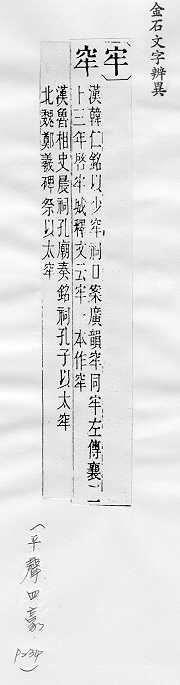 金石文字辨異
〔牢〕
窂
漢韓仁銘以少窂祠口案廣韻窂同牢左傳襄二
十三年啓牢城釋文云牢一本作窂
漢魯相史晨祠孔廟奏銘祠孔子以太窂
北魏鄭羲碑祭以太窂
(平聲四豪 P234)